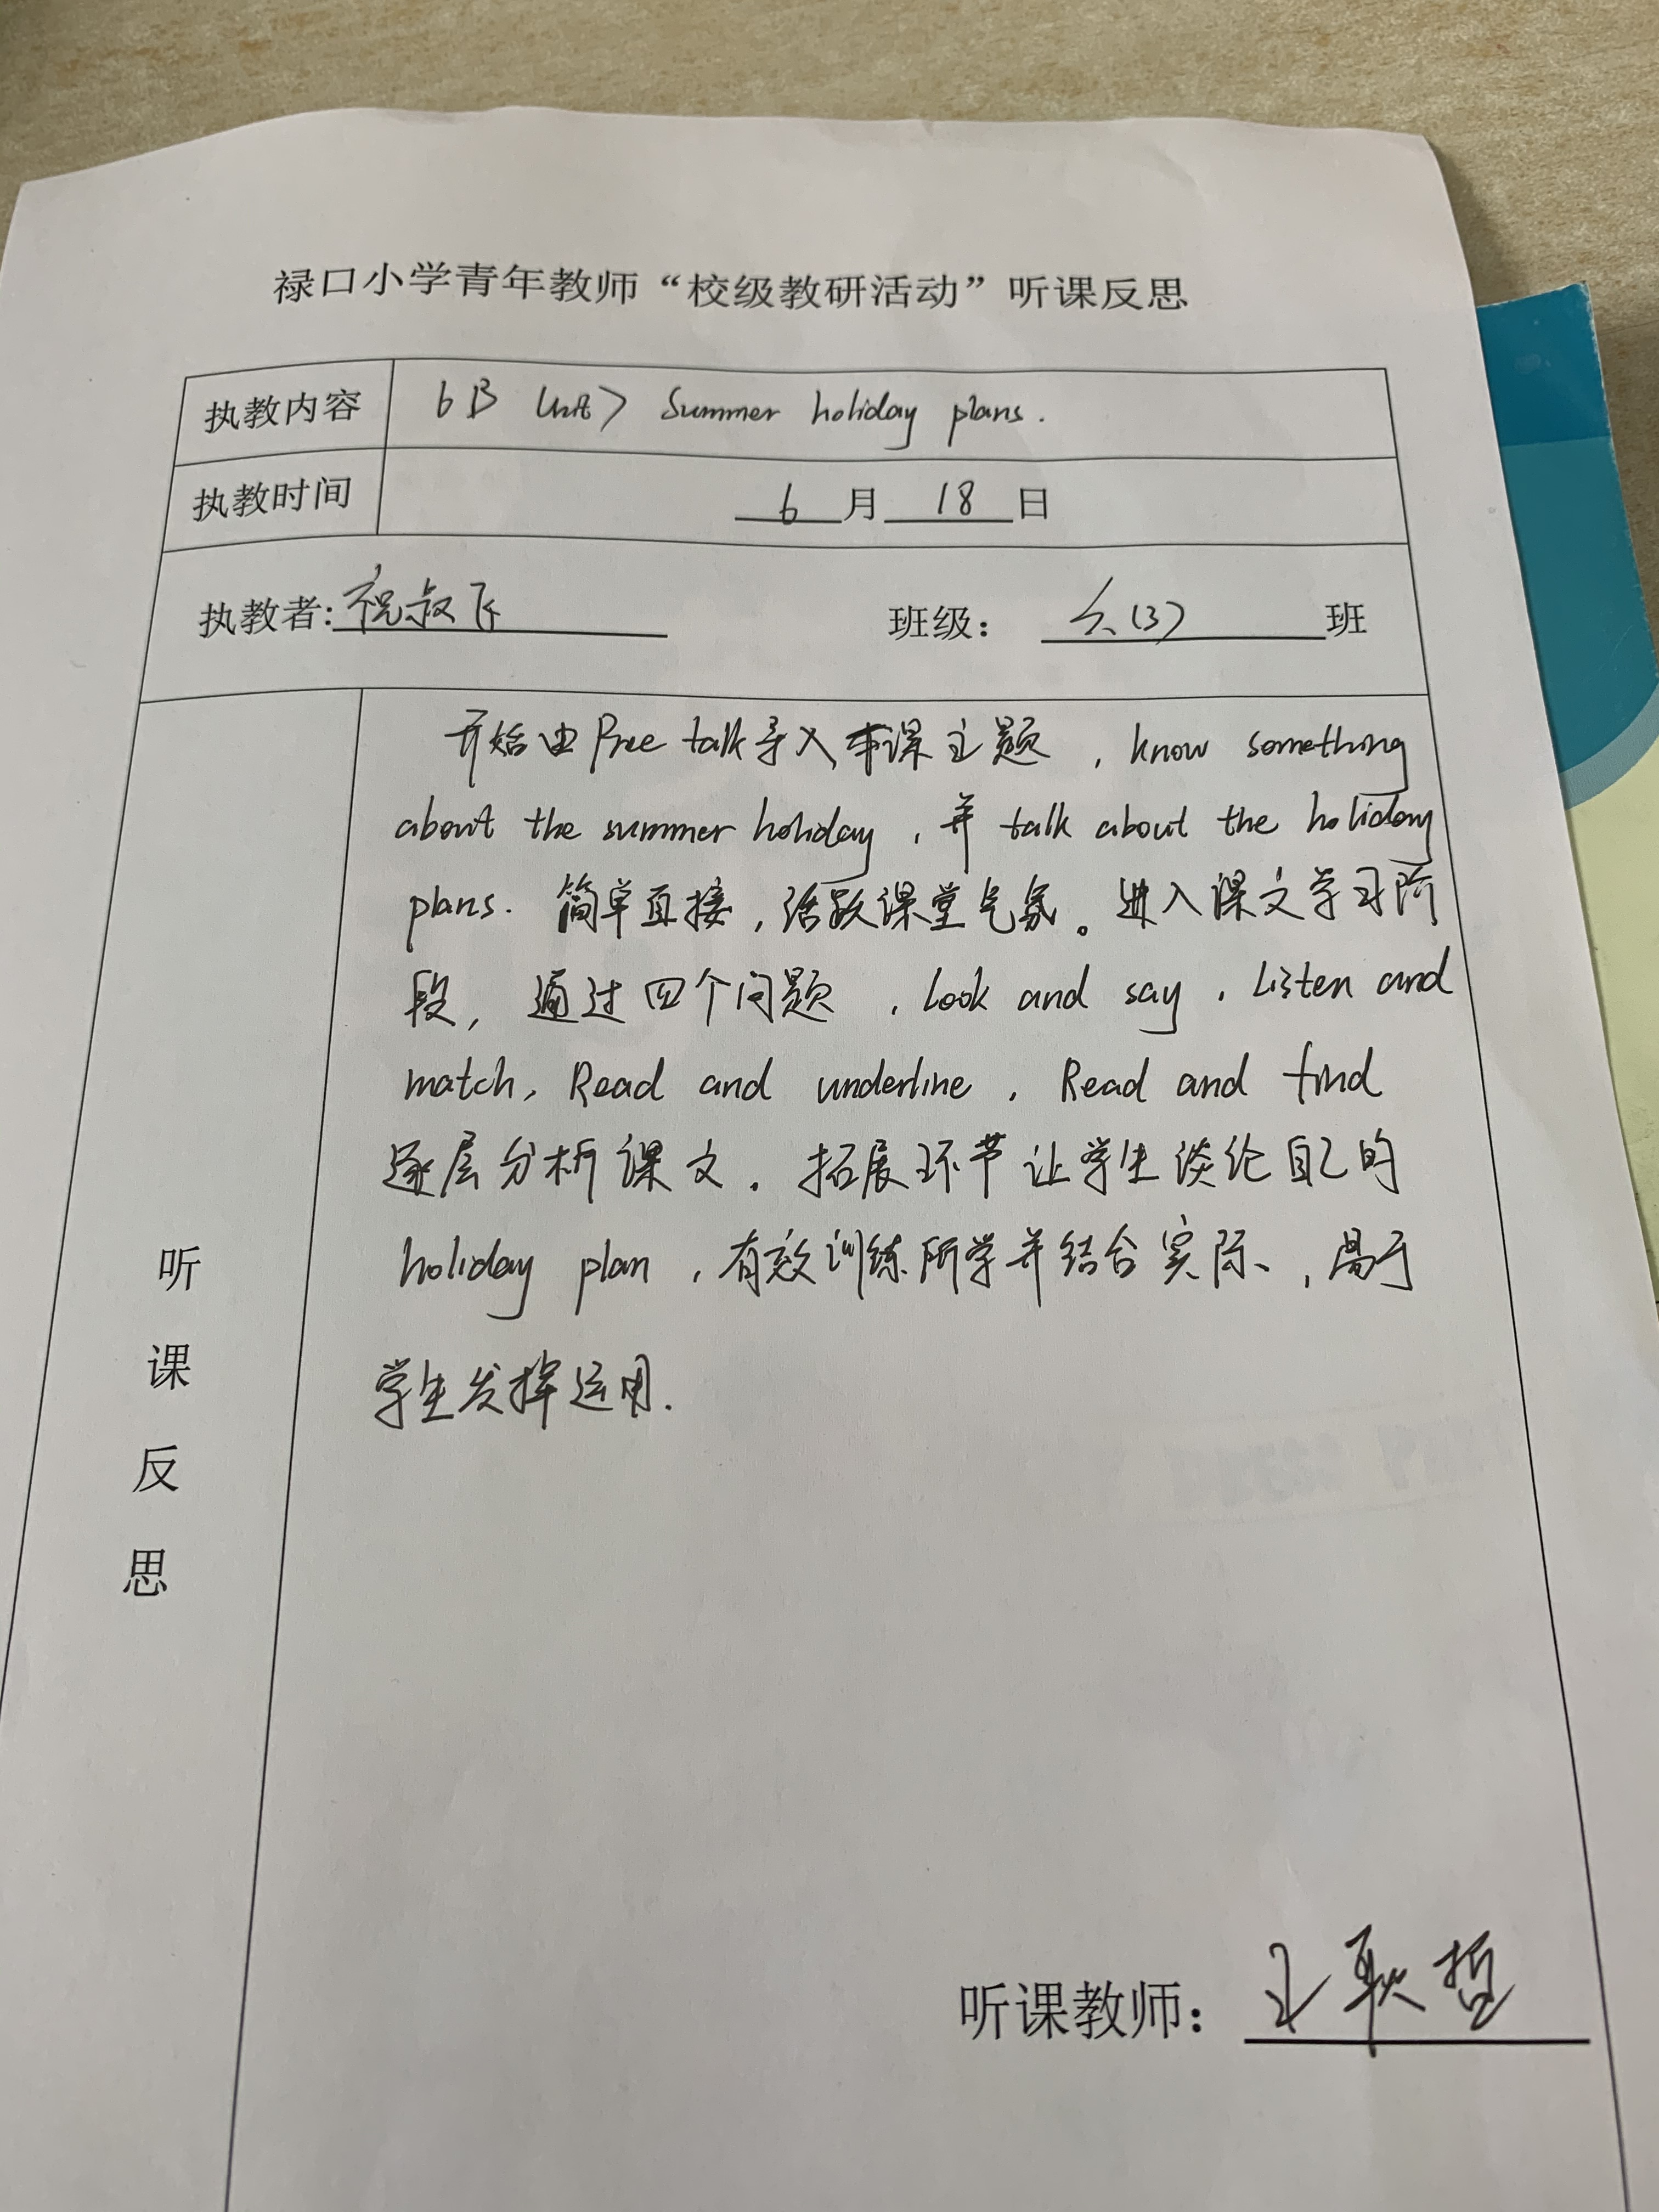 禄口小学青年教师“校级教研活动”听课反思
执教内容 6B Unit7 Summer holiday plans.
执教时间 6月18日
执教者:祝叔 班级： 六(3) 班
开始由Free talk导入本课主题，know something
about the summer holiday，并 talk about the holiday
plans. 简单直接，活跃课堂气氛。进入课文学习阶
段，通过四个问题，Look and say，Listen and
match, Read and underline，Read and find
逐层分析课文．拓展环节让学生谈论自己的
holiday plan，有效训练所学并结合实际、，易于
学生发挥运用.
听
课
反
思
听课教师：王耿哲